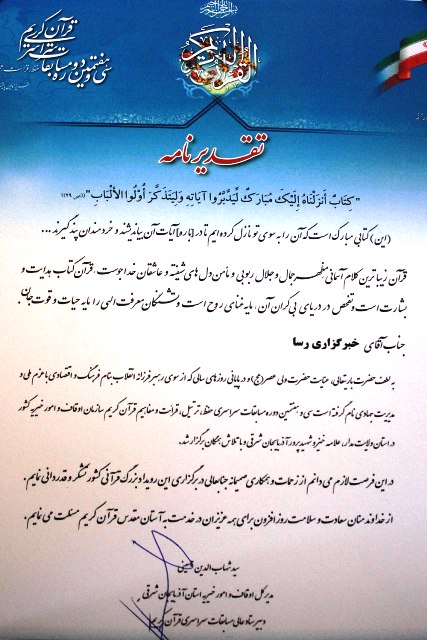 بسم الله الرحمن الرحیم
القرآن الکریم
سی و هفتمین دوره مسابقات سراسری قرآن کریم
تقدیرنامه
"كِتَابٌ أَنزَلْنَاهُ إِلَيْكَ مُبَارَكٌ لِّيَدَّبَّرُوا آيَاتِهِ وَلِيَتَذَكَّرَ أُوْلُوا الأَلْبَابِ" (ص/۲۹)
(این) کتابی مبارک است که آن را به سوی تو نازل کرده ایم تا در (باره) آیات آن بیاندیشند و خردمندان پند گیرند ...
قرآن زیباترین کلام آسمانی مظهر جمال و جلال ربوبی و مأمن دل های شیفته و عاشقان خداجوست، قرآن کتاب هدایت و
بشارت است و تفحص در دریای بی کران آن، مایه غنای روح است و تشنگان معرفت الهی را مایه حیات و قوت جان.
جناب آقای خبرگزاری رسا
به لطف حضرت باریتعالی، عنایت حضرت ولی عصر (عج) و در پایانی روزهای سالی که از سوی رهبر فرزانه انقلاب بنام فرهنگ و اقتصادی با عزم ملی و
مدیریت جهادی نام گرفته است سی و هفتمین دوره مسابقات سراسری حفظ، ترتیل، قرائت و مفاهیم قرآن کریم سازمان اوقاف و امور خیریه کشور
در استان ولایت مدار، علامه خیز و شهید پرور آذربایجان شرقی و با تلاش همگان برگزار شد.
در این فرصت لازم می دانم از زحمات و همکاری صمیمانه جنابعالی در برگزاری این رویداد بزرگ قرآنی کشور تشکر و قدردانی نمایم.
از خداوند منان سعادت و سلامت روز افزون برای همه عزیزان در خدمت به آستان مقدس قرآن کریم مسئلت می نمایم.
سید شهاب الدین حسینی
مدیر کل اوقاف و امور خیریه استان آذربایجان شرقی
و دبیر ستاد عالی مسابقات سراسری قرآن کریم